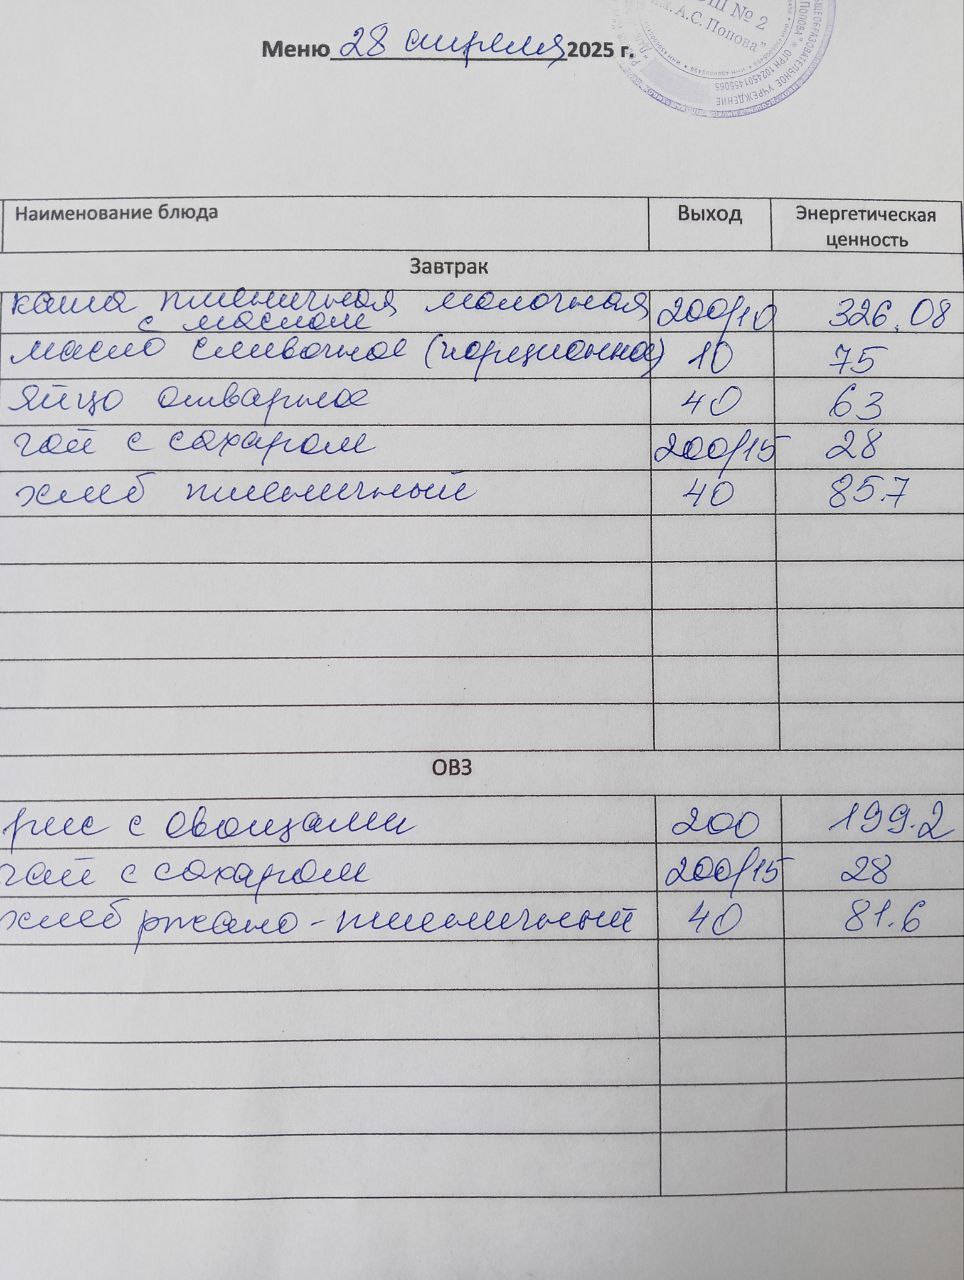 Меню 28 апреля 2025 г.
ОШ № 2
им. А.С. Попова"
Наименование блюда Выход Энергетическая ценность
Завтрак
каша пшеничная молочная с маслом 200/10 326.08
масло сливочное (порционное) 10 75
яйцо отварное 40 63
чай с сахаром 200/15 28
хлеб пшеничный 40 85.7
ОВЗ
рис с овощами 200 199.2
чай с сахаром 200/15 28
хлеб ржано-пшеничный 40 81.6